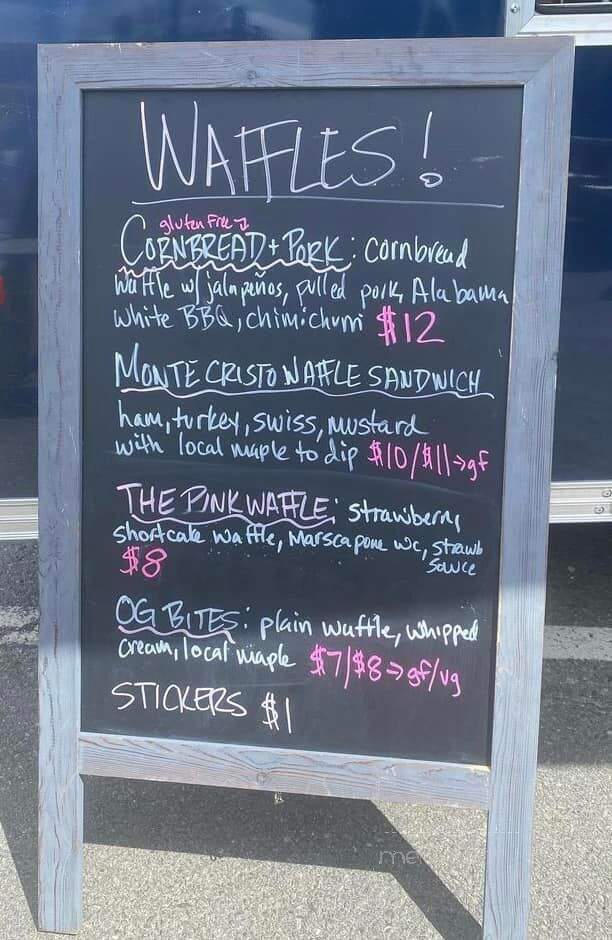 WAFFLES!
gluten free
CORNBREAD + PORK: Cornbread
Waffle w/ jalapeños, pulled pork, Alabama
White BBQ, chimichurri $12
MONTE CRISTO WAFFLE SANDWICH
ham, turkey, swiss, mustard
with local maple to dip $10/$11→gf
THE PINK WAFFLE: strawberry
shortcake waffle, Marscapone wc, strawb
$8 sauce
OG BITES: plain waffle, whipped
cream, local maple $7/$8→gf/vg
STICKERS $1